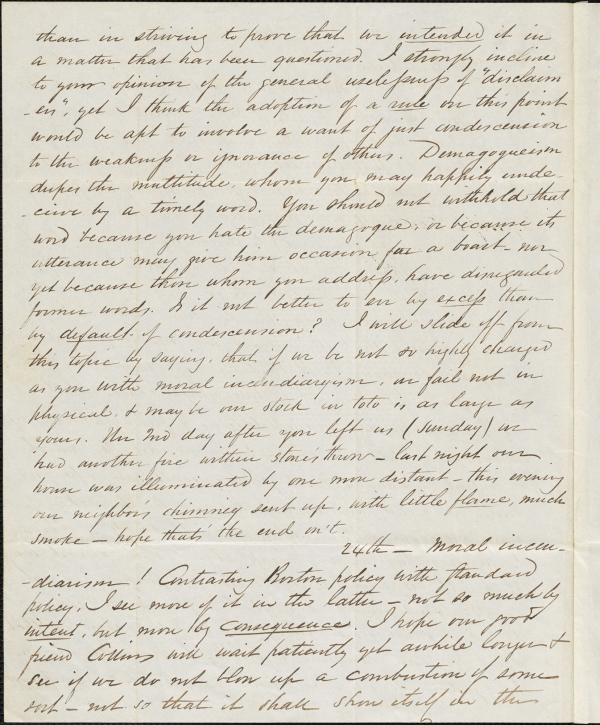 than in striving to prove that we intended it in
a matter that has been questioned. I strongly incline
to your opinion of the general uselessness of "disclaim
-ers", yet I think the adoption of a rule on this point
would be apt to involve a want of just condescension
to the weakness or ignorance of others. Demagogueism
dupes the multitude, whom you may happily unde-
-ceive by a timely word. You should not withhold that
word because you hate the demagogue, or because its
utterance may give him occasion for a boast - nor
yet because those whom you address, have disregarded
former words. Is it not better to err by excess than
by default of condescension? I will slide off from
this topic by saying, that if we be not so highly charged
as you with moral incendiaryism, we fail not in
physical, & maybe our stock in toto is as large as
yours. The 2nd day after you left us (Sunday) we
had another fire within stone's throw - last night our
house was illuminated by one more distant - this evening
our neighbors chimney sent up, with little flame, much
smoke - hope that's the end on't.
24th - Moral incen-
-diarism! Contrasting Boston policy with Standard
policy, I see more of it in the latter - not so much by
intent, but more by consequence. I hope our good
friend Collins will wait patiently yet awhile longer &
see if we do not blow up a combustion of some
sort - not so that it shall show itself in the